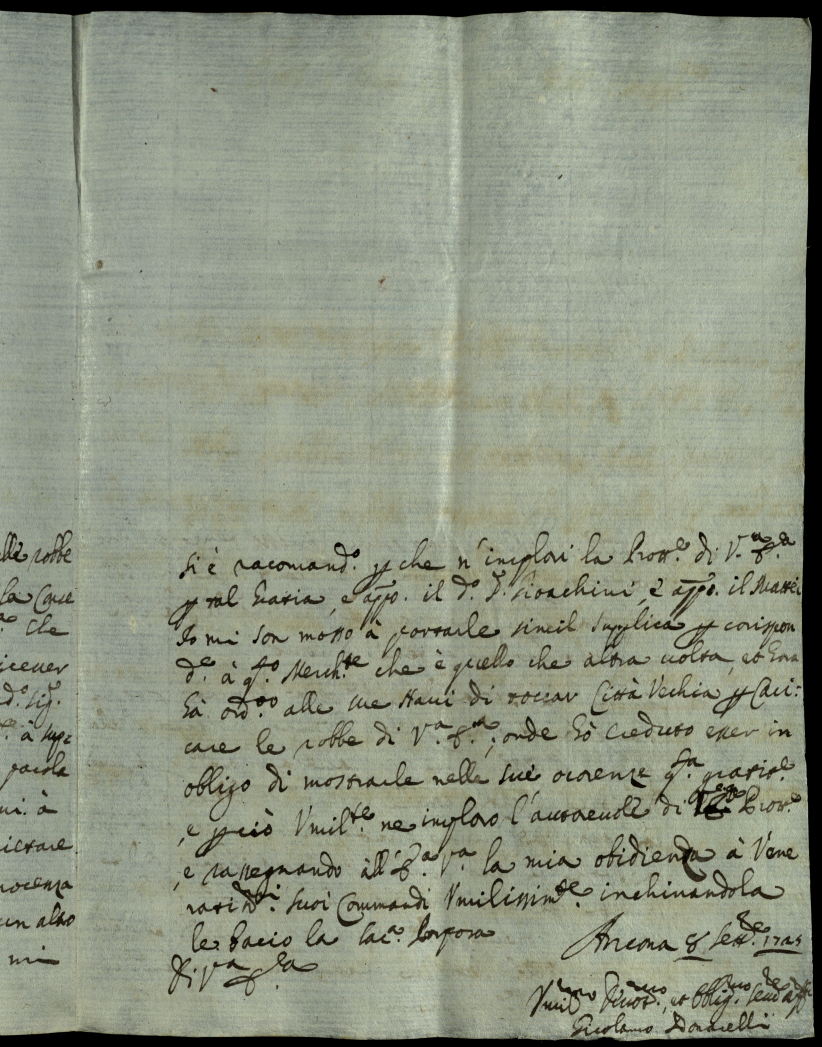 elle robbe
la Cque
che
icever
d.º Sig.
à supp
parola
ni. à
ietare
nocenza
un altro
mi
si è racomand.º p che n'implori la Prott.e di V.ra E.za
p tal Gratia, e app.º il d.º S.r Gioachini, e app.º il Mattei
Io mi son mosso à portarle simil supplica p corispon
d.e à q.sto Merch.te che è quello che altra uolta, et hora
hà ord.to alle sue Naui di toccar Cittá Vechia p Cari:
care le robbe di V.a E.za; onde hò creduto esser in
obligo di mostrarle nelle sue ocorenze q.sta
, e p ciò Vmil.te ne imploro l'autoreuole di Prott.e
, e rassegnando all'E.za V.a la mia obidienza à Vene
ratiss.mi suoi Commandi Vmilissim.te inchinandola
le bacio la Sac.a Porpora
Di V.a E.za
Ancona 8 Sett.e
Vmil.mo Diuot.mo, et Oblig.mo
Girolamo Donarelli